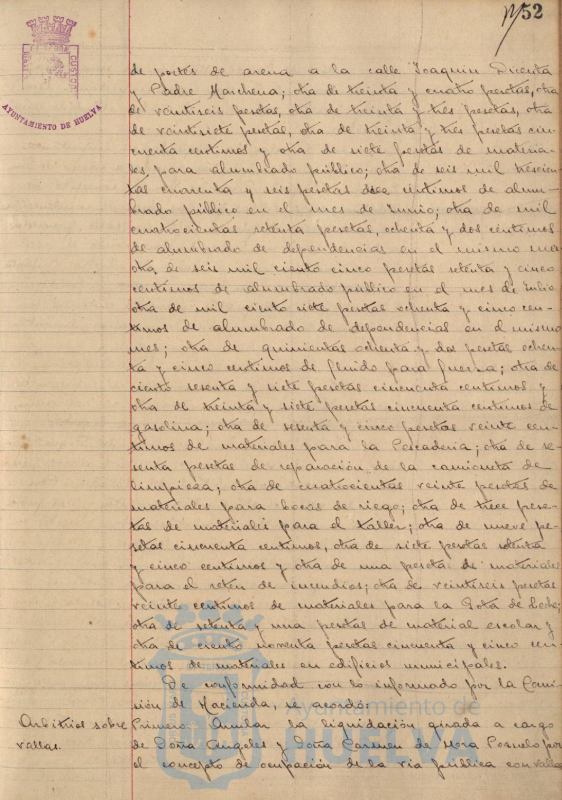 52
AYUNTAMIENTO DE HUELVA
de portes de arena a la calle Joaquin Dicenta
y Padre Marchena; otra de treinta y cuatro pesetas, otra
de veintiseis pesetas, otra de treinta y tres pesetas, otra
de veintisiete pesetas, otra de treinta y tres pesetas cin-
cuenta centimos y otra de siete pesetas de materia-
les para alumbrado público; otra de seis mil trescien-
tas cuarenta y seis pesetas doce centimos de alum-
brado público en el mes de Junio; otra de mil
cuatrocientas setenta pesetas, ochenta y dos centimos
de alumbrado de dependencias en el mismo mes
otra de seis mil ciento cinco pesetas setenta y cinco
centimos de alumbrado público en el mes de Julio
otra de mil ciento siete pesetas ochenta y cinco cen-
timos de alumbrado de dependencias en el mismo
mes; otra de quinientas ochenta y dos pesetas ochen-
ta y cinco centimos de fluido para fuerza; otra de
ciento sesenta y siete pesetas cincuenta centimos y
otra de treinta y siete pesetas cincuenta centimos de
gasolina; otra de sesenta y cinco pesetas veinte cen-
timos de materiales para la Pescaderia; otra de se-
senta pesetas de reparación de la camioneta de
limpieza; otra de cuatrocientas veinte pesetas de
materiales para bocas de riego; otra de trece pese-
tas de materiales para el taller; otra de nueve pe-
setas cincuenta centimos, otra de siete pesetas setenta
y cinco centimos y otra de una peseta de materiales
para el retén de incendios; otra de veintiseis pesetas
veinte centimos de materiales para la Gota de Leche;
otra de setenta y una pesetas de material escolar y
otra de ciento noventa pesetas cincuenta y cinco cen-
timos de materiales en edificios municipales.
De conformidad con lo informado por la Comi-
sión de Hacienda, se acordó:
Arbitrios sobre
vallas.
Primero: Anular la liquidación girada a cargo
de Doña Angeles y Doña Carmen de Mora por
el concepto de ocupación de la via pública con vallas
Ayuntamiento de
HUELVA